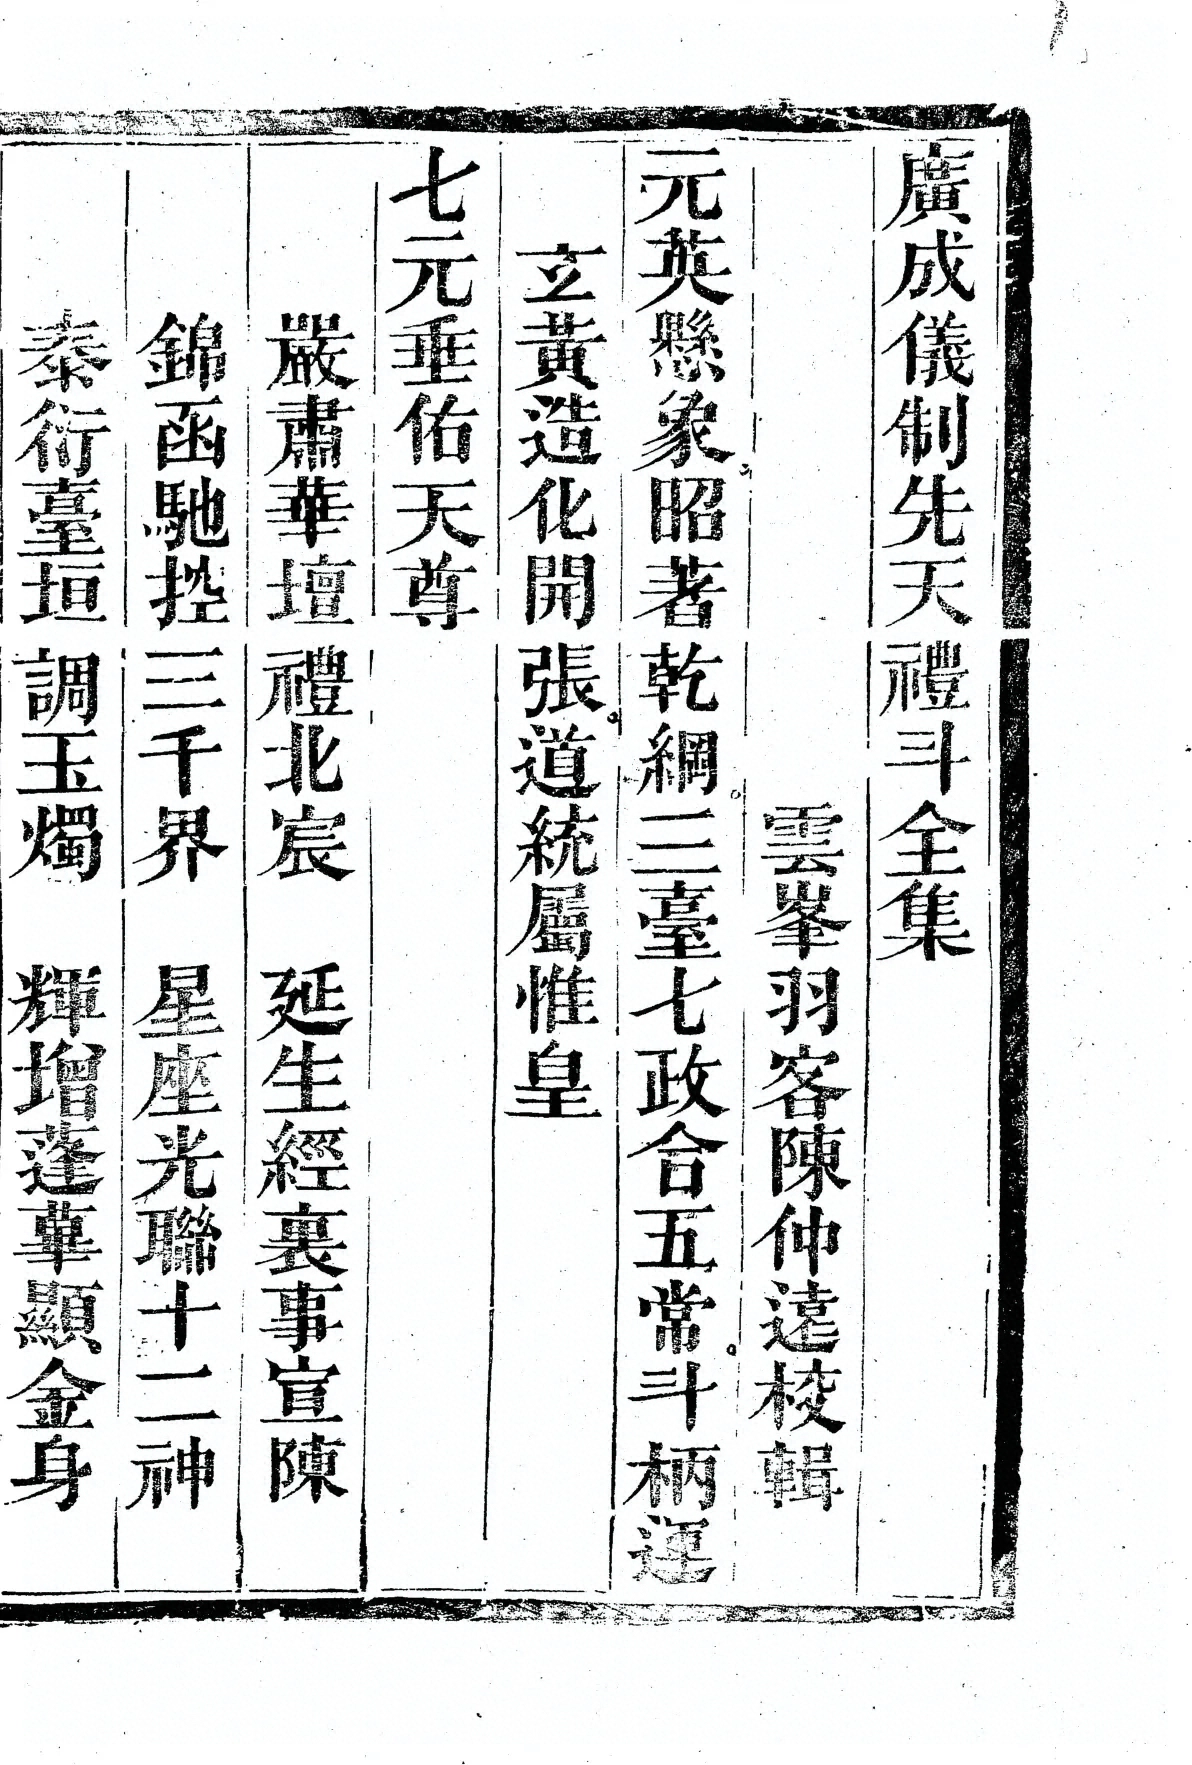 廣成儀制先天禮斗全集
雲峯羽客陳仲遠校輯
元英懸象。昭著乾綱。三臺七政合五常。斗柄運
立黃造化開張。道統屬惟皇
七元垂佑天尊
嚴肅華壇禮北宸 延生經裏事宣陳
錦函馳控三千界 星座光聯十二神
泰衍臺垣調玉燭 輝增蓬蓽顯金身